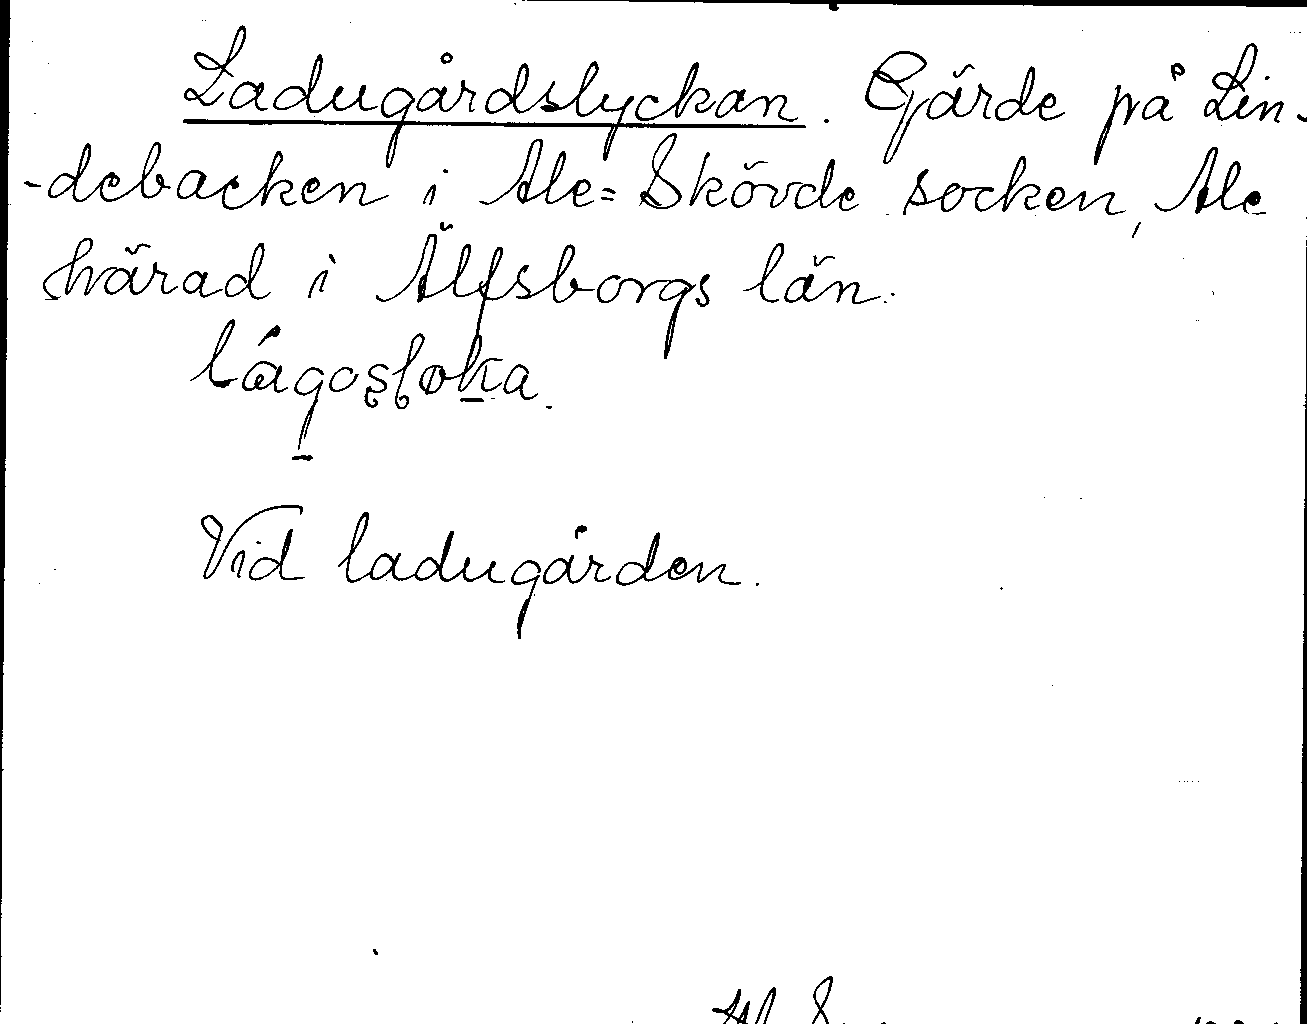 Ladugårdslyckan. Gärde på Lin-
-debacken i Ale=Skövde socken, Ale
härad i Älfsborgs län.
Vid ladugården.